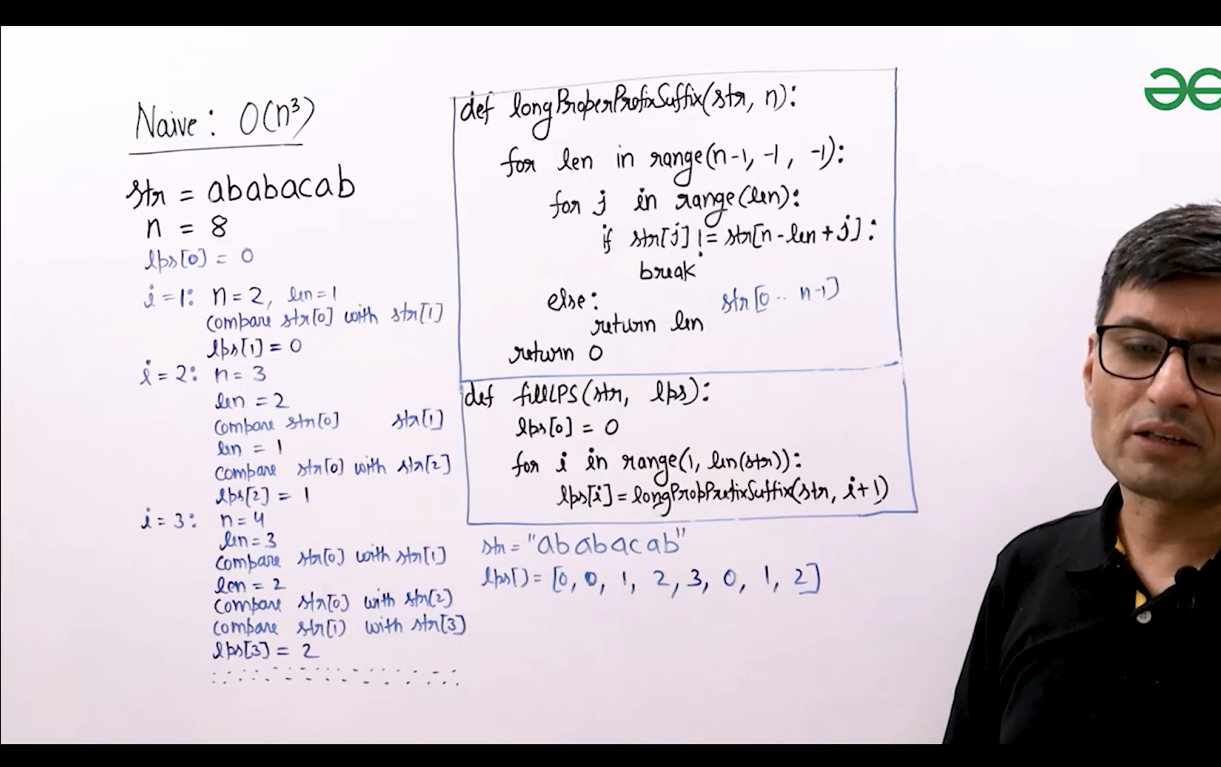 Naive: O(n³)
str = ababacab
n = 8
lps[0] = 0
i=1: n=2, len=1
compare str[0] with str[1]
lps[1] = 0
i=2: n=3
len=2
compare str[0] str[1]
len = 1
compare str[0] with str[2]
lps[2] = 1
i=3: n=4
len=3
compare str[0] with str[1]
len = 2
compare str[0] with str[2]
compare str[1] with str[3]
lps[3] = 2
def longProperPrefixSuffix(str, n):
for len in range(n-1, -1, -1):
for j in range(len):
if str[j] != str[n-len+j]:
break
else:
str[0.. n-1]
return len
return 0
def fillLPS(str, lps):
lps[0] = 0
for i in range(1, len(str)):
lps[i] = longPropPrefixSuffix(str, i+1)
str = "ababacab"
lps[] = [0, 0, 1, 2, 3, 0, 1, 2]